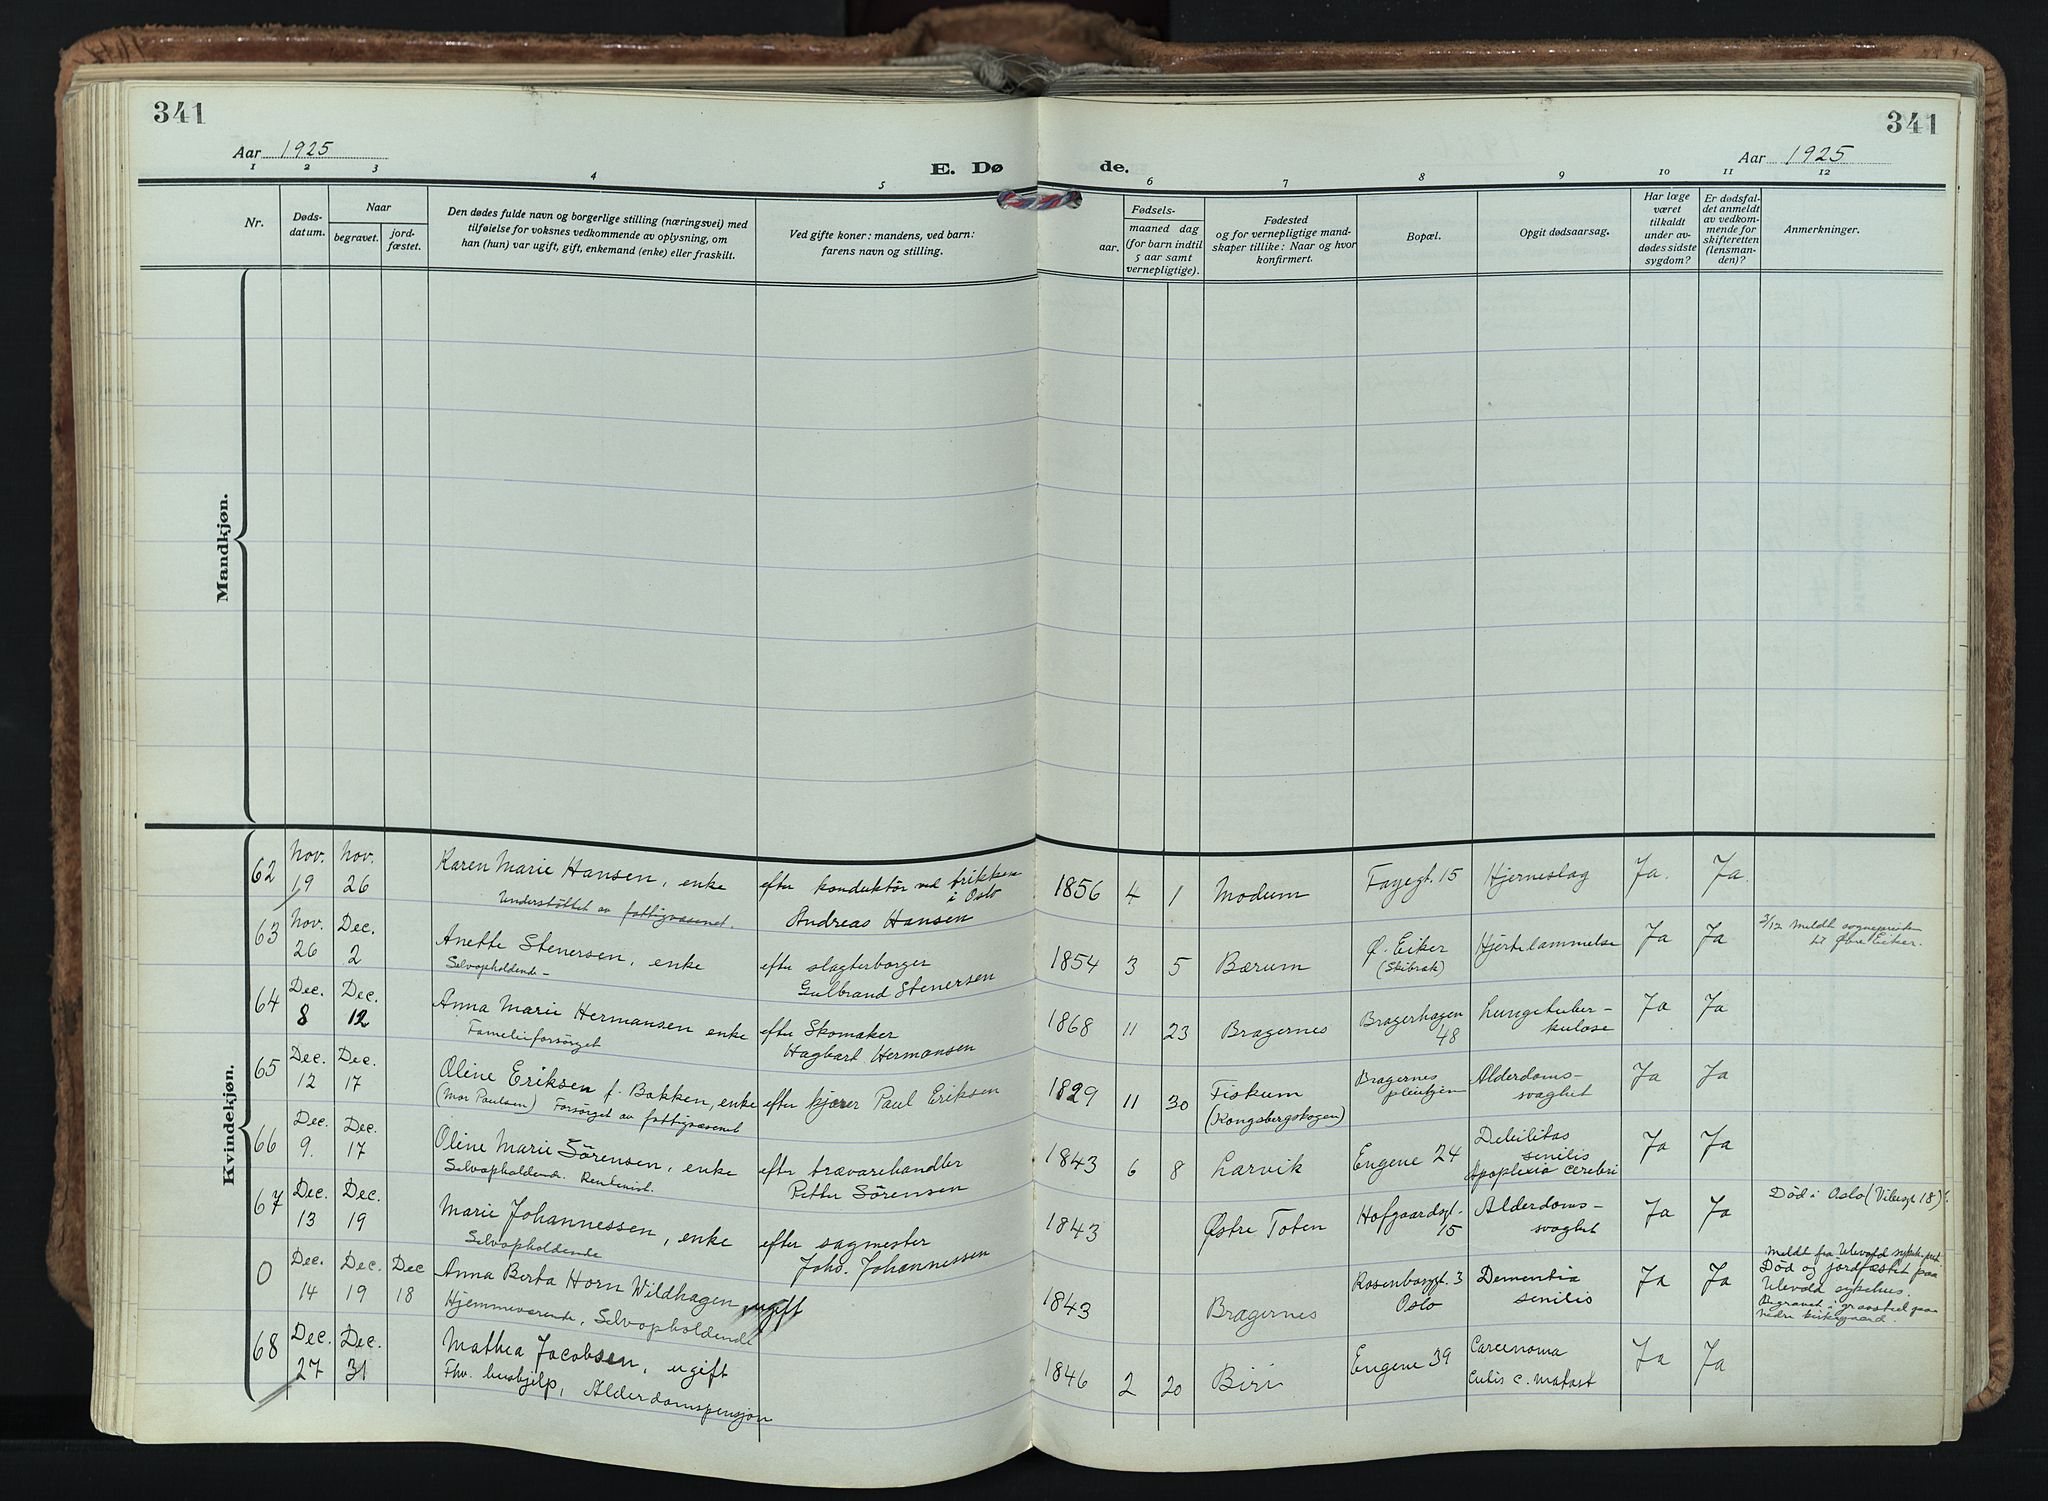 341
341
Aar 1925
E. Dø
de.
Aar 1925
1 2 3 4 5 6 7 8 9 10 11 12
Nr.
Døds-
datum.
Naar
begravet.
jord-
fæstet.
Den dødes fulde navn og borgerlige stilling (næringsvei) med
tilføielse for voksnes vedkommende av oplysning, om
han (hun) var ugift, gift, enkemand (enke) eller fraskilt.
Ved gifte koner: mandens, ved barn:
farens navn og stilling.
Fødsels-
aar.
maaned dag
(for barn indtil
5 aar samt
vernepligtige).
Fødested
og for vernepligtige mand-
skaper tillike: Naar og hvor
konfirmert.
Bopæl.
Opgit dødsaarsag.
Har læge
været
tilkaldt
under av-
dødes sidste
sygdom?
Er dødsfal-
det anmeldt
av vedkom-
mende for
skifteretten
(lensman-
den)?
Anmerkninger.
Mandkjøn.
Kvindekjøn.
62 Nov. 19 Nov. 26 Karen Marie Hansen, enke efter konduktör ved trikken i Oslo 1856 4 1 Modum Fayegt. 15 Hjerneslag Ja. Ja.
Understöttet av fattigvæsenet. Andreas Hansen
63 Nov. 26 Dec. 2 Anette Stenersen, enke efter slagterborger 1854 3 5 Bærum Ø. Eiker (Skibrak) Hjertelammelse Ja Ja 3/12 meldt sognepresten til Øvre Eiker.
Selvopholdende - Gulbrand Stenersen
64 Dec. 8 Dec. 12 Anna Marie Hermansen enke efter Skomaker 1868 11 23 Bragernes Bragerhagen 48 Lungetuber-kulose Ja Ja
Familieforsörget Hagbart Hermansen
65 Dec. 12 Dec. 17 Oline Eriksen f. Bakken, enke efter kjører Paul Eriksen 1829 11 30 Fiskum (Kongsbergskogen) Bragernes pleiehjem Alderdoms-svaghet Ja Ja
(Mor Paulsen) Forsörget av fattigvæsenet
66 Dec. 9. Dec. 17 Oline Marie Sörensen, enke efter trævarehandler 1843 6 8 Larvik Engene 24 Debilitas senilis Apoplexia cerebri Ja Ja
Selvopholdende. Rentenist. Petter Sörensen
67 Dec. 13 Dec. 19 Marie Johannessen, enke efter sagmester 1843 Østre Toten Hofgaardsgt. 15 Alderdoms-svaghet Ja Ja Död i Oslo
Selvopholdende Johs. Johannessen
0 Dec. 14 Dec. 19 Dec 18 Anna Berta Horn Wildhagen, ugift 1843 Bragernes Rosenborggt. 3 Oslo Dementia senilis Ja Ja Meldt fra Ulevold sykeh.
Död og jordfæstet paa
Ulevold sykehus.
Begravet i gravsted paa
nedre kirkegaard.
Hjemmeværende, Selvopholdende
68 Dec. 27 Dec. 31 Mathea Jacobsen, ugift 1846 2 20 Biri Engene 39 Carcinoma cutis c. metast Ja Ja
Fhv. hushjelp, Alderdomspensjon